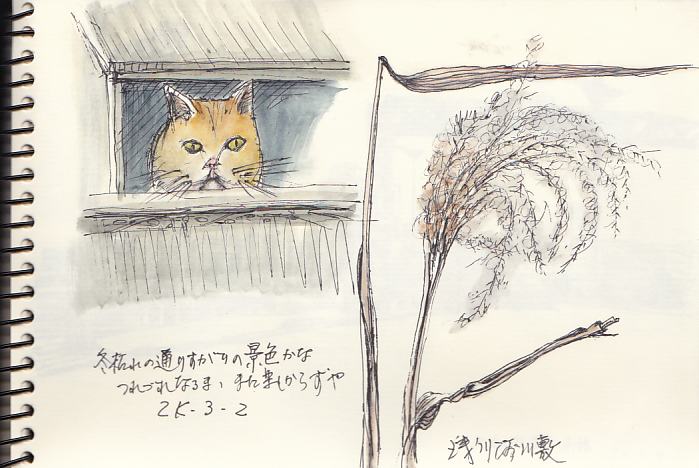 冬枯れの通りすがりの景色かな
つれづれなるまゝまた楽しからずや
2K-3-2